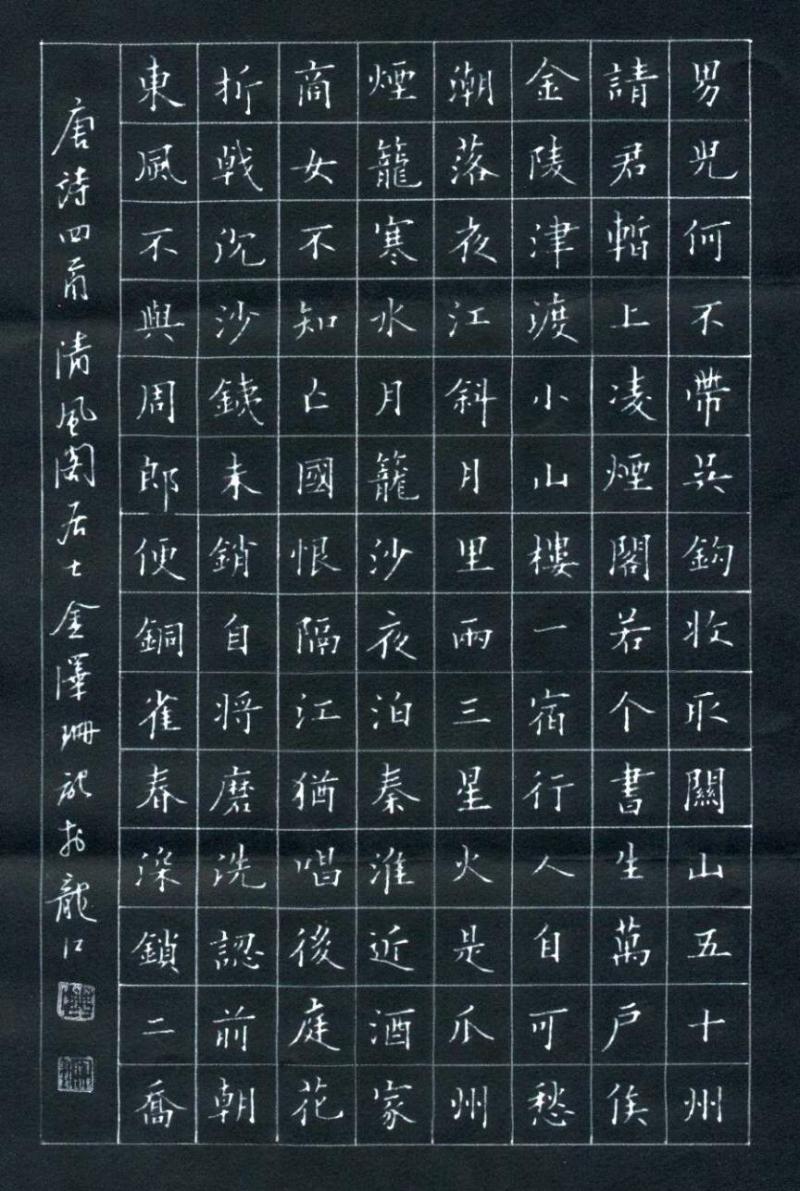 男兒何不帶吳鈎收取關山五十州
請君暫上凌煙閣若个書生萬戶侯
金陵津渡小山樓一宿行人自可愁
潮落夜江斜月里兩三星火是瓜州
煙籠寒水月籠沙夜泊秦淮近酒家
商女不知亡國恨隔江猶唱後庭花
折戟沉沙鐵未銷自將磨洗認前朝
東風不與周郎便銅雀春深鎖二喬
唐詩四首清風閣居士金澤珊於龍江